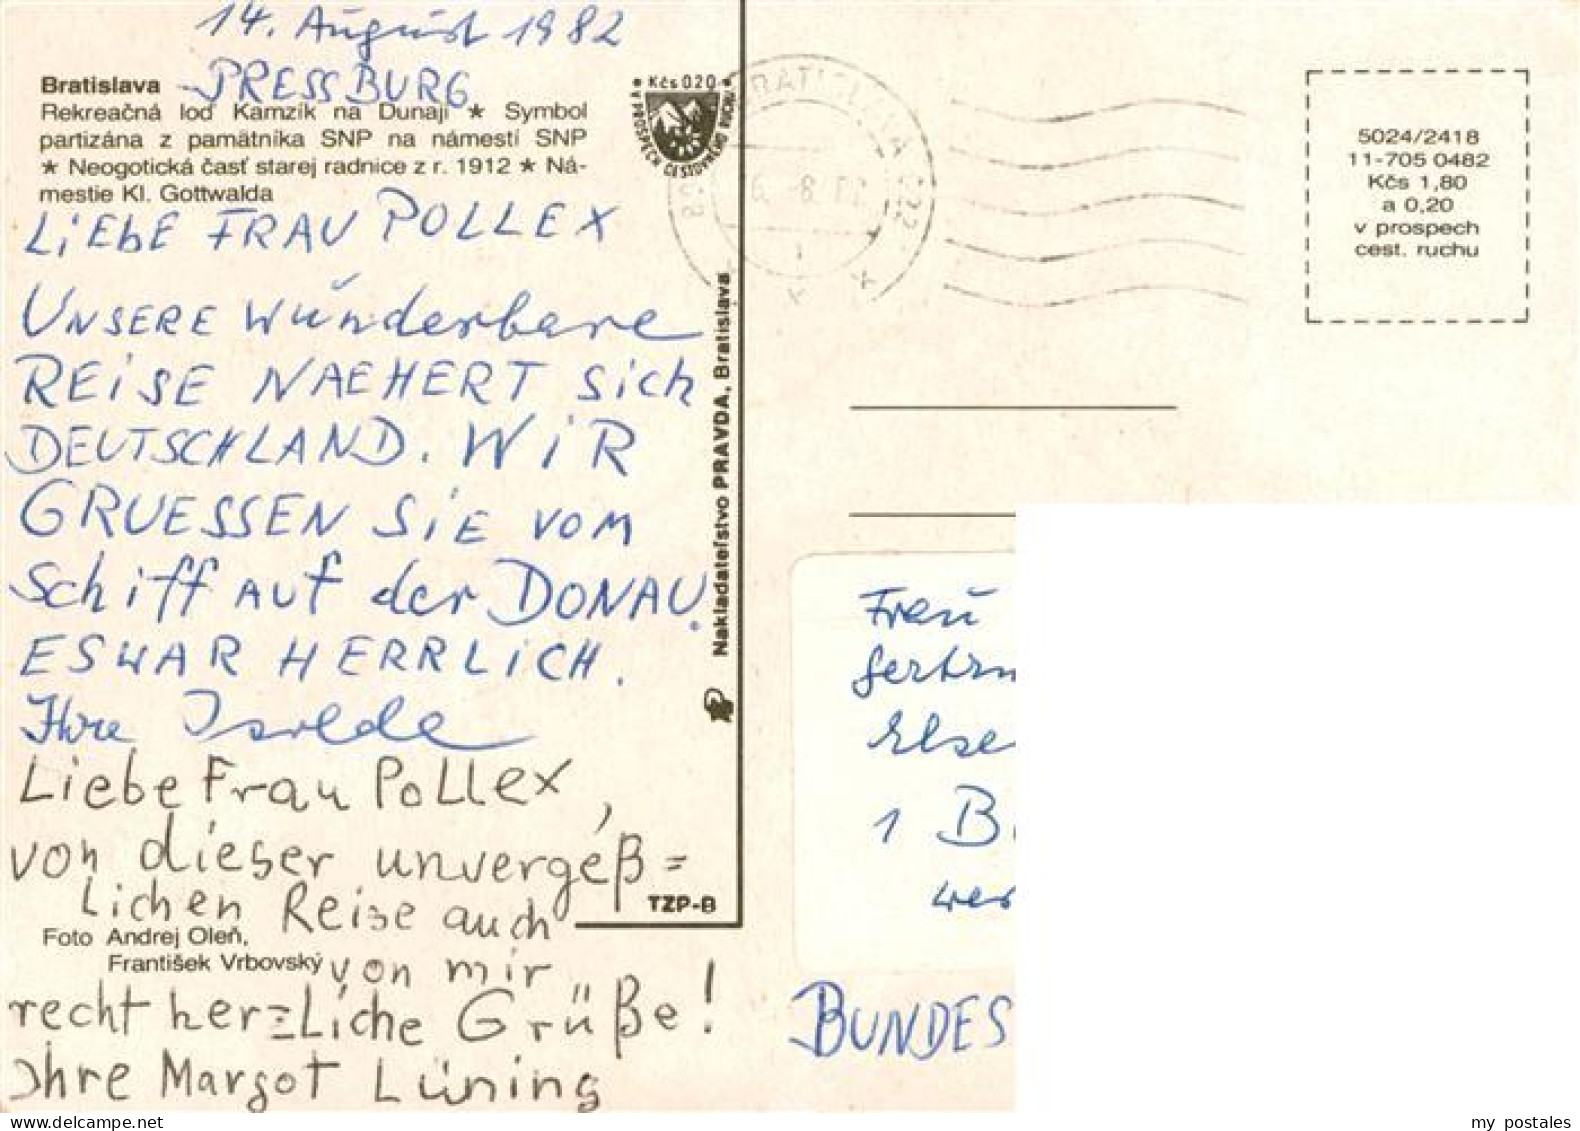 14. August 1982
PRESSBURG
Bratislava
Rekreačná loď Kamzík na Dunaji ★ Symbol
partizána z pamätníka SNP na námestí SNP
★ Neogotická časť starej radnice z r. 1912 ★ Ná-
mestie Kl. Gottwalda
LiEbE FRAU POLLEX
UNSERE wunderbare
REiSE NAEHERT sich
DEUTSCHLAND. WiR
GRUESSEN SiE vom
Schiff AUf der DONAU.
ES WAR HERRLICH.
Ihre Isolde
Liebe Frau Pollex,
von dieser unvergeß=
lichen Reise auch
von mir
recht herzliche Grüße!
Ihre Margot Lüning
Foto Andrej Oleň,
František Vrbovský
TZP-B
Nakladateľstvo PRAVDA, Bratislava
Kčs 0.20
V PROSPECH CESTOVNÉHO RUCHU
BRATISLAVA 22
5024/2418
11-705 0482
Kčs 1,80
a 0,20
v prospech
cest. ruchu
Frau
Else
1 B
BUNDES
my postales